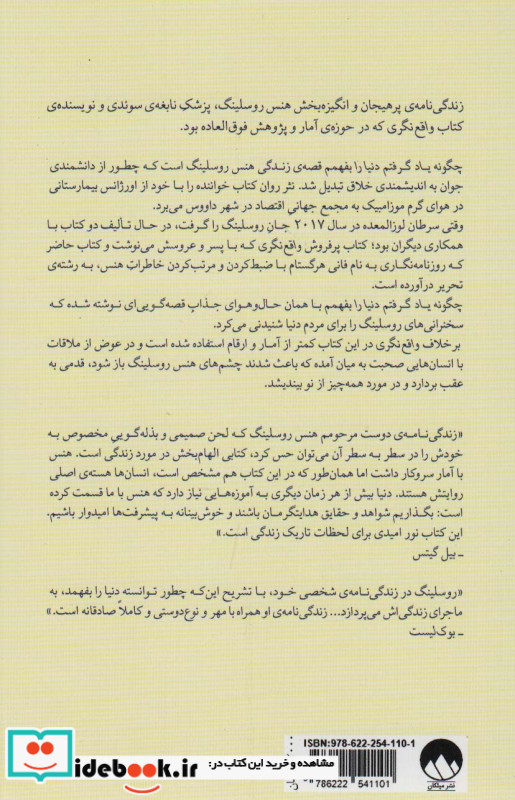 زندگی‌نامه‌ی پرهیجان و انگیزه‌بخش هنس روسلینگ، پزشکِ نابغه‌ی سوئدی و نویسنده‌ی
کتاب واقع‌نگری که در حوزه‌ی آمار و پژوهش فوق‌العاده بود.
چگونه یاد گرفتم دنیا را بفهمم قصه‌ی زندگی هنس روسلینگ است که چطور از دانشمندی
جوان به اندیشمندی خلاق تبدیل شد. نثر روان کتاب خواننده را با خود از اورژانس بیمارستانی
در هوای گرم موزامبیک به مجمع جهانیِ اقتصاد در شهر داووس می‌برد.
وقتی سرطان لوزالمعده در سال ۲۰۱۷ جانِ روسلینگ را گرفت، در حال تألیف دو کتاب با
همکاری دیگران بود؛ کتاب پرفروش واقع‌نگری که با پسر و عروسش می‌نوشت و کتاب حاضر
که روزنامه‌نگاری به نام فانی هرگستام با ضبط‌کردن و مرتب‌کردن خاطراتِ هنس، به رشته‌ی
تحریر درآورده است.
چگونه یاد گرفتم دنیا را بفهمم با همان حال‌وهوای جذابِ قصه‌گویی‌ای نوشته شده که
سخنرانی‌های روسلینگ را برای مردم دنیا شنیدنی می‌کرد.
برخلاف واقع‌نگری در این کتاب کمتر از آمار و ارقام استفاده شده است و در عوض از ملاقات
با انسان‌هایی صحبت به میان آمده که باعث شدند چشم‌های هنس روسلینگ باز شود، قدمی به
عقب بردارد و در مورد همه‌چیز از نو بیندیشد.
«زندگی‌نامه‌ی دوست مرحومم هنس روسلینگ که لحن صمیمی و بذله‌گوییِ مخصوص به
خودش را در سطر به سطر آن می‌توان حس کرد، کتابی الهام‌بخش در مورد زندگی است. هنس
با آمار سروکار داشت اما همان‌طور که در این کتاب هم مشخص است، انسان‌ها هسته‌ی اصلی
روایتش هستند. دنیا بیش از هر زمان دیگری به آموزه‌هایی نیاز دارد که هنس با ما قسمت کرده
است: بگذاریم شواهد و حقایق هدایتگرمان باشند و خوش‌بینانه به پیشرفت‌ها امیدوار باشیم.
این کتاب نور امیدی برای لحظات تاریک زندگی است.»
ـ بیل گیتس
«روسلینگ در زندگی‌نامه‌ی شخصی خود، با تشریح این‌که چطور توانسته دنیا را بفهمد، به
ماجرای زندگی‌اش می‌پردازد... زندگی‌نامه‌ی او همراه با مهر و نوع‌دوستی و کاملاً صادقانه است.»
ـ بوک‌لیست
ISBN:978-622-254-110-1
786222 541101
نشر میلکان
مشاهده و خرید این کتاب در:
idebook.ir